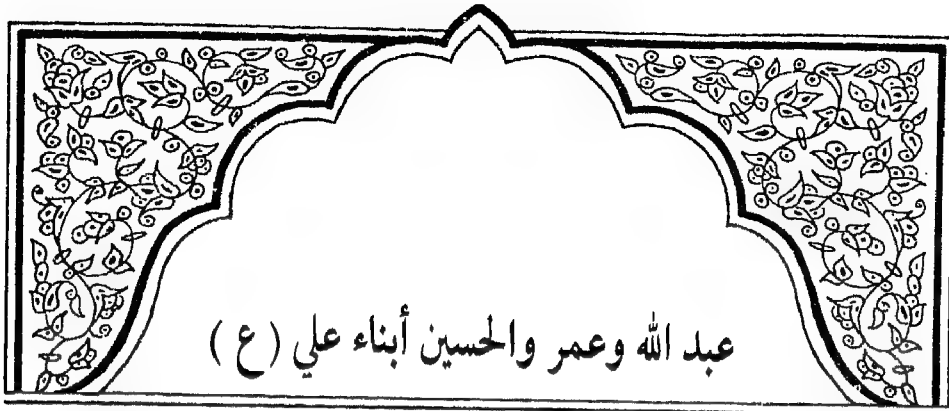 عبد الله وعمر والحسين أبناء علي ( ع )